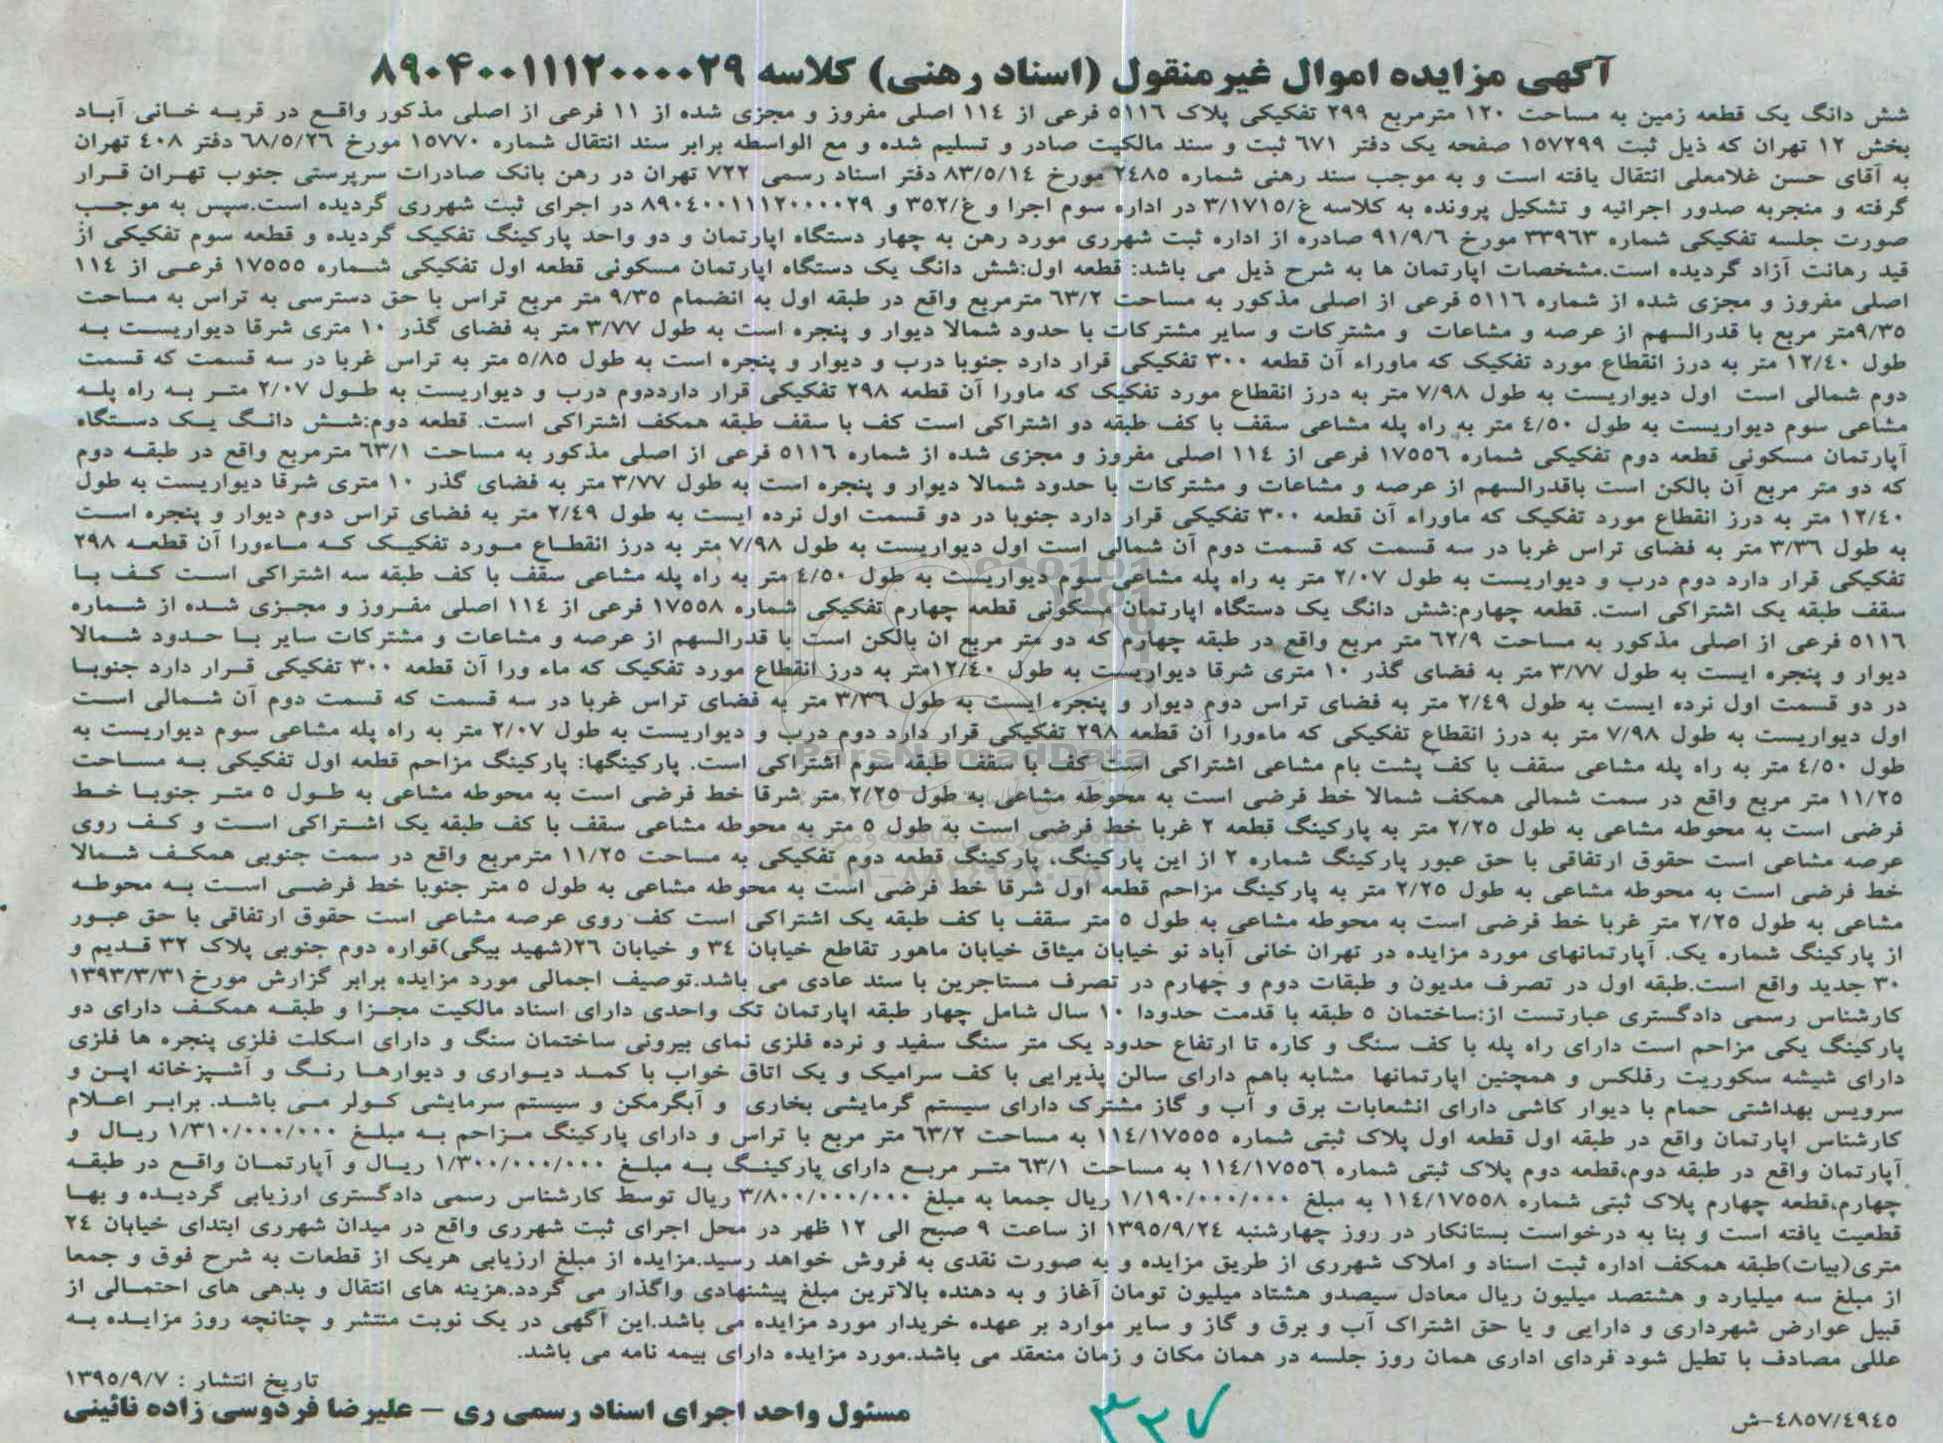 آگهی مزایده اموال غیرمنقول (اسناد رهنی) کلاسه ۸۹۰۴۰۰۱۱۱۲۰۰۰۰۲۹
شش دانگ یک قطعه زمین به مساحت ۱۲۰ مترمربع ۲۹۹ تفکیکی پلاک ۵۱۱۶ فرعی از ۱۱۴ اصلی مفروز و مجزی شده از ۱۱ فرعی از اصلی مذکور واقع در قریه خانی آباد
بخش ۱۲ تهران که ذیل ثبت ۱۵۷۲۹۹ صفحه یک دفتر ۶۷۱ ثبت و سند مالکیت صادر و تسلیم شده و مع الواسطه برابر سند انتقال شماره ۱۵۷۷۰ مورخ ۶۸/۵/۲۶ دفتر ۴۰۸ تهران
به آقای حسن غلامعلی انتقال یافته است و به موجب سند رهنی شماره ۲۴۸۵ مورخ ۸۳/۵/۱۴ دفتر اسناد رسمی ۷۲۲ تهران در رهن بانک صادرات سرپرستی جنوب تهران قرار
گرفته و منجربه صدور اجرائیه و تشکیل پرونده به کلاسه غ/۳/۱۷۱۵ در اداره سوم اجرا و غ/۳۵۲ و ۸۹۰۴۰۰۱۱۱۲۰۰۰۰۲۹ در اجرای ثبت شهرری گردیده است.سپس به موجب
صورت جلسه تفکیکی شماره ۳۳۹۶۳ مورخ ۹۱/۹/۶ صادره از اداره ثبت شهرری مورد رهن به چهار دستگاه اپارتمان و دو واحد پارکینگ تفکیک گردیده و قطعه سوم تفکیکی از
قید رهانت آزاد گردیده است.مشخصات اپارتمان ها به شرح ذیل می باشد: قطعه اول:شش دانگ یک دستگاه اپارتمان مسکونی قطعه اول تفکیکی شماره ۱۷۵۵۵ فرعی از ۱۱۴
اصلی مفروز و مجزی شده از شماره ۵۱۱۶ فرعی از اصلی مذکور به مساحت ۶۳/۲ مترمربع واقع در طبقه اول به انضمام ۹/۳۵ متر مربع تراس با حق دسترسی به تراس به مساحت
۹/۳۵متر مربع با قدرالسهم از عرصه و مشاعات و مشترکات و سایر مشترکات با حدود شمالا دیوار و پنجره است به طول ۳/۷۷ متر به فضای گذر ۱۰ متری شرقا دیواریست به
طول ۱۲/۴۰ متر به درز انقطاع مورد تفکیک که ماوراء آن قطعه ۳۰۰ تفکیکی قرار دارد جنوبا درب و دیوار و پنجره است به طول ۵/۸۵ متر به تراس غربا در سه قسمت که قسمت
دوم شمالی است اول دیواریست به طول ۷/۹۸ متر به درز انقطاع مورد تفکیک که ماورا آن قطعه ۲۹۸ تفکیکی قرار دارددوم درب و دیواریست به طول ۲/۰۷ متر به راه پله
مشاعی سوم دیواریست به طول ۴/۵۰ متر به راه پله مشاعی سقف با کف طبقه دو اشتراکی است کف با سقف طبقه همکف اشتراکی است. قطعه دوم:شش دانگ یک دستگاه
آپارتمان مسکونی قطعه دوم تفکیکی شماره ۱۷۵۵۶ فرعی از ۱۱۴ اصلی مفروز و مجزی شده از شماره ۵۱۱۶ فرعی از اصلی مذکور به مساحت ۶۳/۱ مترمربع واقع در طبقه دوم
که دو متر مربع آن بالکن است باقدرالسهم از عرصه و مشاعات و مشترکات با حدود شمالا دیوار و پنجره است به طول ۳/۷۷ متر به فضای گذر ۱۰ متری شرقا دیواریست به طول
۱۲/۴۰ متر به درز انقطاع مورد تفکیک که ماوراء آن قطعه ۳۰۰ تفکیکی قرار دارد جنوبا در دو قسمت اول نرده ایست به طول ۲/۴۹ متر به فضای تراس دوم دیوار و پنجره است
به طول ۳/۳۶ متر به فضای تراس غربا در سه قسمت که قسمت دوم آن شمالی است اول دیواریست به طول ۷/۹۸ متر به درز انقطاع مورد تفکیک که ماءورا آن قطعه ۲۹۸
تفکیکی قرار دارد دوم درب و دیواریست به طول ۲/۰۷ متر به راه پله مشاعی سوم دیواریست به طول ۴/۵۰ متر به راه پله مشاعی سقف با کف طبقه سه اشتراکی است کف با
سقف طبقه یک اشتراکی است. قطعه چهارم:شش دانگ یک دستگاه اپارتمان مسکونی قطعه چهارم تفکیکی شماره ۱۷۵۵۸ فرعی از ۱۱۴ اصلی مفروز و مجزی شده از شماره
۵۱۱۶ فرعی از اصلی مذکور به مساحت ۶۲/۹ متر مربع واقع در طبقه چهارم که دو متر مربع ان بالکن است با قدرالسهم از عرصه و مشاعات و مشترکات سایر با حدود شمالا
دیوار و پنجره ایست به طول ۳/۷۷ متر به فضای گذر ۱۰ متری شرقا دیواریست به طول ۱۲/۴۰متر به درز انقطاع مورد تفکیک که ماء ورا آن قطعه ۳۰۰ تفکیکی قرار دارد جنوبا
در دو قسمت اول نرده ایست به طول ۲/۴۹ متر به فضای تراس دوم دیوار و پنجره ایست به طول ۳/۳۶ متر به فضای تراس غربا در سه قسمت که قسمت دوم آن شمالی است
اول دیواریست به طول ۷/۹۸ متر به درز انقطاع تفکیکی که ماءورا آن قطعه ۲۹۸ تفکیکی قرار دارد دوم درب و دیواریست به طول ۲/۰۷ متر به راه پله مشاعی سوم دیواریست به
طول ۴/۵۰ متر به راه پله مشاعی سقف با کف پشت بام مشاعی اشتراکی است کف با سقف طبقه سوم اشتراکی است. پارکینگها: پارکینگ مزاحم قطعه اول تفکیکی به مساحت
۱۱/۲۵ متر مربع واقع در سمت شمالی همکف شمالا خط فرضی است به محوطه مشاعی به طول ۲/۲۵ متر شرقا خط فرضی است به محوطه مشاعی به طول ۵ متر جنوبا خط
فرضی است به محوطه مشاعی به طول ۲/۲۵ متر به پارکینگ قطعه ۲ غربا خط فرضی است به طول ۵ متر به محوطه مشاعی سقف با کف طبقه یک اشتراکی است و کف روی
عرصه مشاعی است حقوق ارتفاقی با حق عبور پارکینگ شماره ۲ از این پارکینگ، پارکینگ قطعه دوم تفکیکی به مساحت ۱۱/۲۵ مترمربع واقع در سمت جنوبی همکف شمالا
خط فرضی است به محوطه مشاعی به طول ۲/۲۵ متر به پارکینگ مزاحم قطعه اول شرقا خط فرضی است به محوطه مشاعی به طول ۵ متر جنوبا خط فرضی است به محوطه
مشاعی به طول ۲/۲۵ متر غربا خط فرضی است به محوطه مشاعی به طول ۵ متر سقف با کف طبقه یک اشتراکی است کف روی عرصه مشاعی است حقوق ارتفاقی با حق عبور
از پارکینگ شماره یک. آپارتمانهای مورد مزایده در تهران خانی آباد نو خیابان میثاق خیابان ماهور تقاطع خیابان ۳۴ و خیابان ۲۶(شهید بیگی)قواره دوم جنوبی پلاک ۳۲ قدیم و
۳۰ جدید واقع است.طبقه اول در تصرف مدیون و طبقات دوم و چهارم در تصرف مستاجرین با سند عادی می باشد.توصیف اجمالی مورد مزایده برابر گزارش مورخ ۱۳۹۳/۳/۳۱
کارشناس رسمی دادگستری عبارتست از:ساختمان ۵ طبقه با قدمت حدودا ۱۰ سال شامل چهار طبقه اپارتمان تک واحدی دارای اسناد مالکیت مجزا و طبقه همکف دارای دو
پارکینگ یکی مزاحم است دارای راه پله با کف سنگ و کاره تا ارتفاع حدود یک متر سنگ سفید و نرده فلزی نمای بیرونی ساختمان سنگ و دارای اسکلت فلزی پنجره ها فلزی
دارای شیشه سکوریت رفلکس و همچنین اپارتمانها مشابه باهم دارای سالن پذیرایی با کف سرامیک و یک اتاق خواب با کمد دیواری و دیوارها رنگ و آشپزخانه اپن و
سرویس بهداشتی حمام با دیوار کاشی دارای انشعابات برق و آب و گاز مشترک دارای سیستم گرمایشی بخاری و آبگرمکن و سیستم سرمایشی کولر می باشد. برابر اعلام
کارشناس اپارتمان واقع در طبقه اول قطعه اول پلاک ثبتی شماره ۱۱۴/۱۷۵۵۵ به مساحت ۶۳/۲ متر مربع با تراس و دارای پارکینگ مزاحم به مبلغ ۱/۳۱۰/۰۰۰/۰۰۰ ریال و
آپارتمان واقع در طبقه دوم،قطعه دوم پلاک ثبتی شماره ۱۱۴/۱۷۵۵۶ به مساحت ۶۳/۱ متر مربع دارای پارکینگ به مبلغ ۱/۳۰۰/۰۰۰/۰۰۰ ریال و آپارتمان واقع در طبقه
چهارم،قطعه چهارم پلاک ثبتی شماره ۱۱۴/۱۷۵۵۸ به مبلغ ۱/۱۹۰/۰۰۰/۰۰۰ ریال جمعا به مبلغ ۳/۸۰۰/۰۰۰/۰۰۰ ریال توسط کارشناس رسمی دادگستری ارزیابی گردیده و بها
قطعیت یافته است و بنا به درخواست بستانکار در روز چهارشنبه ۱۳۹۵/۹/۲۴ از ساعت ۹ صبح الی ۱۲ ظهر در محل اجرای ثبت شهرری واقع در میدان شهرری ابتدای خیابان ۲۴
متری(بیات)طبقه همکف اداره ثبت اسناد و املاک شهرری از طریق مزایده و به صورت نقدی به فروش خواهد رسید.مزایده از مبلغ ارزیابی هریک از قطعات به شرح فوق و جمعا
از مبلغ سه میلیارد و هشتصد میلیون ریال معادل سیصدو هشتاد میلیون تومان آغاز و به دهنده بالاترین مبلغ پیشنهادی واگذار می گردد.هزینه های انتقال و بدهی های احتمالی از
قبیل عوارض شهرداری و دارایی و یا حق اشتراک آب و برق و گاز و سایر موارد بر عهده خریدار مورد مزایده می باشد.این آگهی در یک نوبت منتشر و چنانچه روز مزایده به
عللی مصادف با تطیل شود فردای اداری همان روز جلسه در همان مکان و زمان منعقد می باشد.مورد مزایده دارای بیمه نامه می باشد.
تاریخ انتشار : ۱۳۹۵/۹/۷
مسئول واحد اجرای اسناد رسمی ری – علیرضا فردوسی زاده نائینی
۴۸۵۷/۴۹۴۵–ش
۳۳۷
ParsNamadData